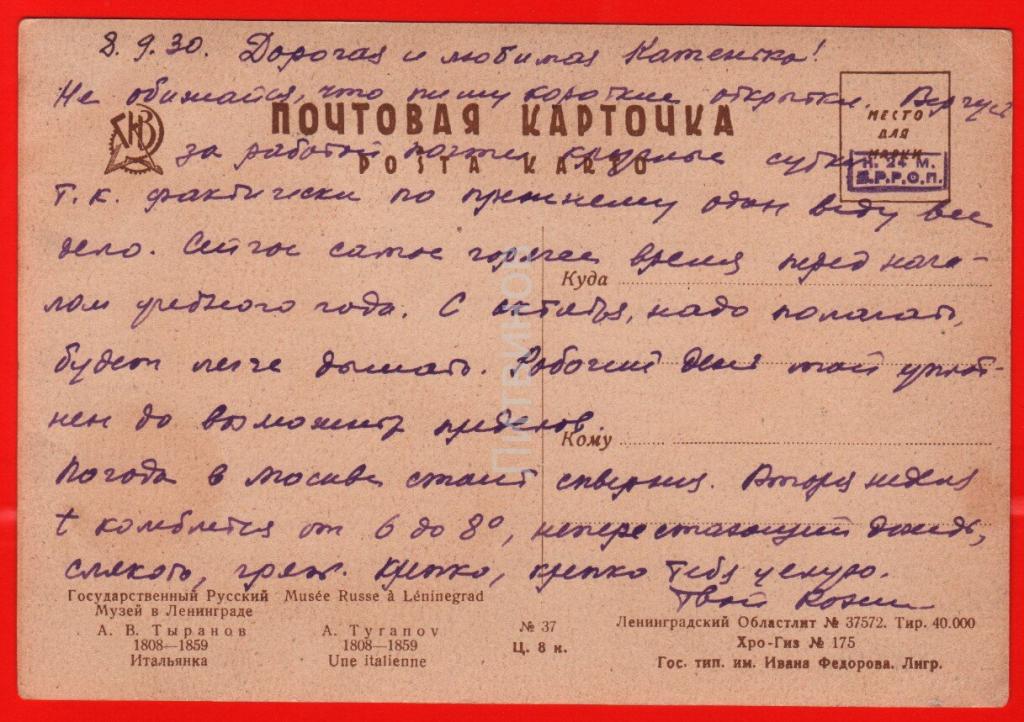 8.9.30. Дорогая и любимая Катенька!
Не обижайся, что пишу короткие открытки. Верчусь
ПОЧТОВАЯ КАРТОЧКА
МЕСТО
ДЛЯ
МАРКИ
за работой почти круглые сутки
POŜTA KARTO
Н. 24 М.
В.Р.Р.О.П.
т.к. фактически по прежнему один веду все
дело. Сейчас самое горячее время перед нача-
Куда
лом учебного года. С октября, надо полагать,
будет легче дышать. Рабочий день мой уплот-
нен до возможных пределов.
Кому
Погода в Москве стоит скверная. Вторая неделя
t колеблется от 6 до 8°, непрестающий дождь,
слякоть, грязь. Крепко, крепко тебя целую.
Твой
Государственный Русский
Музей в Ленинграде
А. В. Тыранов
1808—1859
Итальянка
Musée Russe à Léninegrad
A. Tyranov
1808—1859
Une italienne
№ 37
Ц. 8 к.
Ленинградский Областлит № 37572. Тир. 40.000
Хро-Гиз № 175
Гос. тип. им. Ивана Федорова. Лнгр.